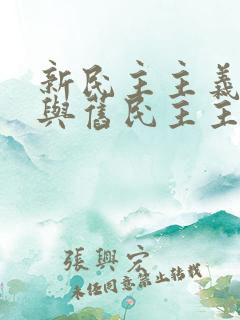 新民主主義
與舊民主主
張興宏
未经同意禁止转载